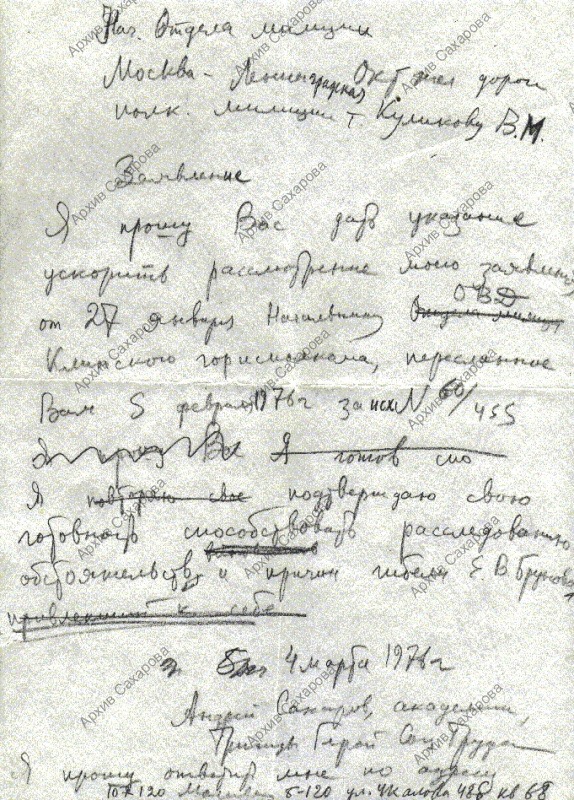 Нач. Отдела милиции
Москва - Ленинградская Окт жел дороги
полк. милиции т. Куликову В.М.
Заявление
Я прошу Вас дать указание
ускорить рассмотрение моего заявления
от 27 января Начальнику Отдела милиции ОВД
Клинского горисполкома, пересланное
Вам 5 февраля 1976 г за исх N 60/455
Я прошу Вас Я готов спо
Я повторяю свое подтверждаю свою
готовность способствовать расследованию
обстоятельств и причин гибели Е.В. Брунова
привлекшит к себе
4 марта 1976 г
Андрей Сахаров, академик,
Трижды Герой Соц Труда
Я прошу ответить мне по адресу
107120 Москва Б-120 ул. Чкалова 48б кв 68
Архив Сахарова